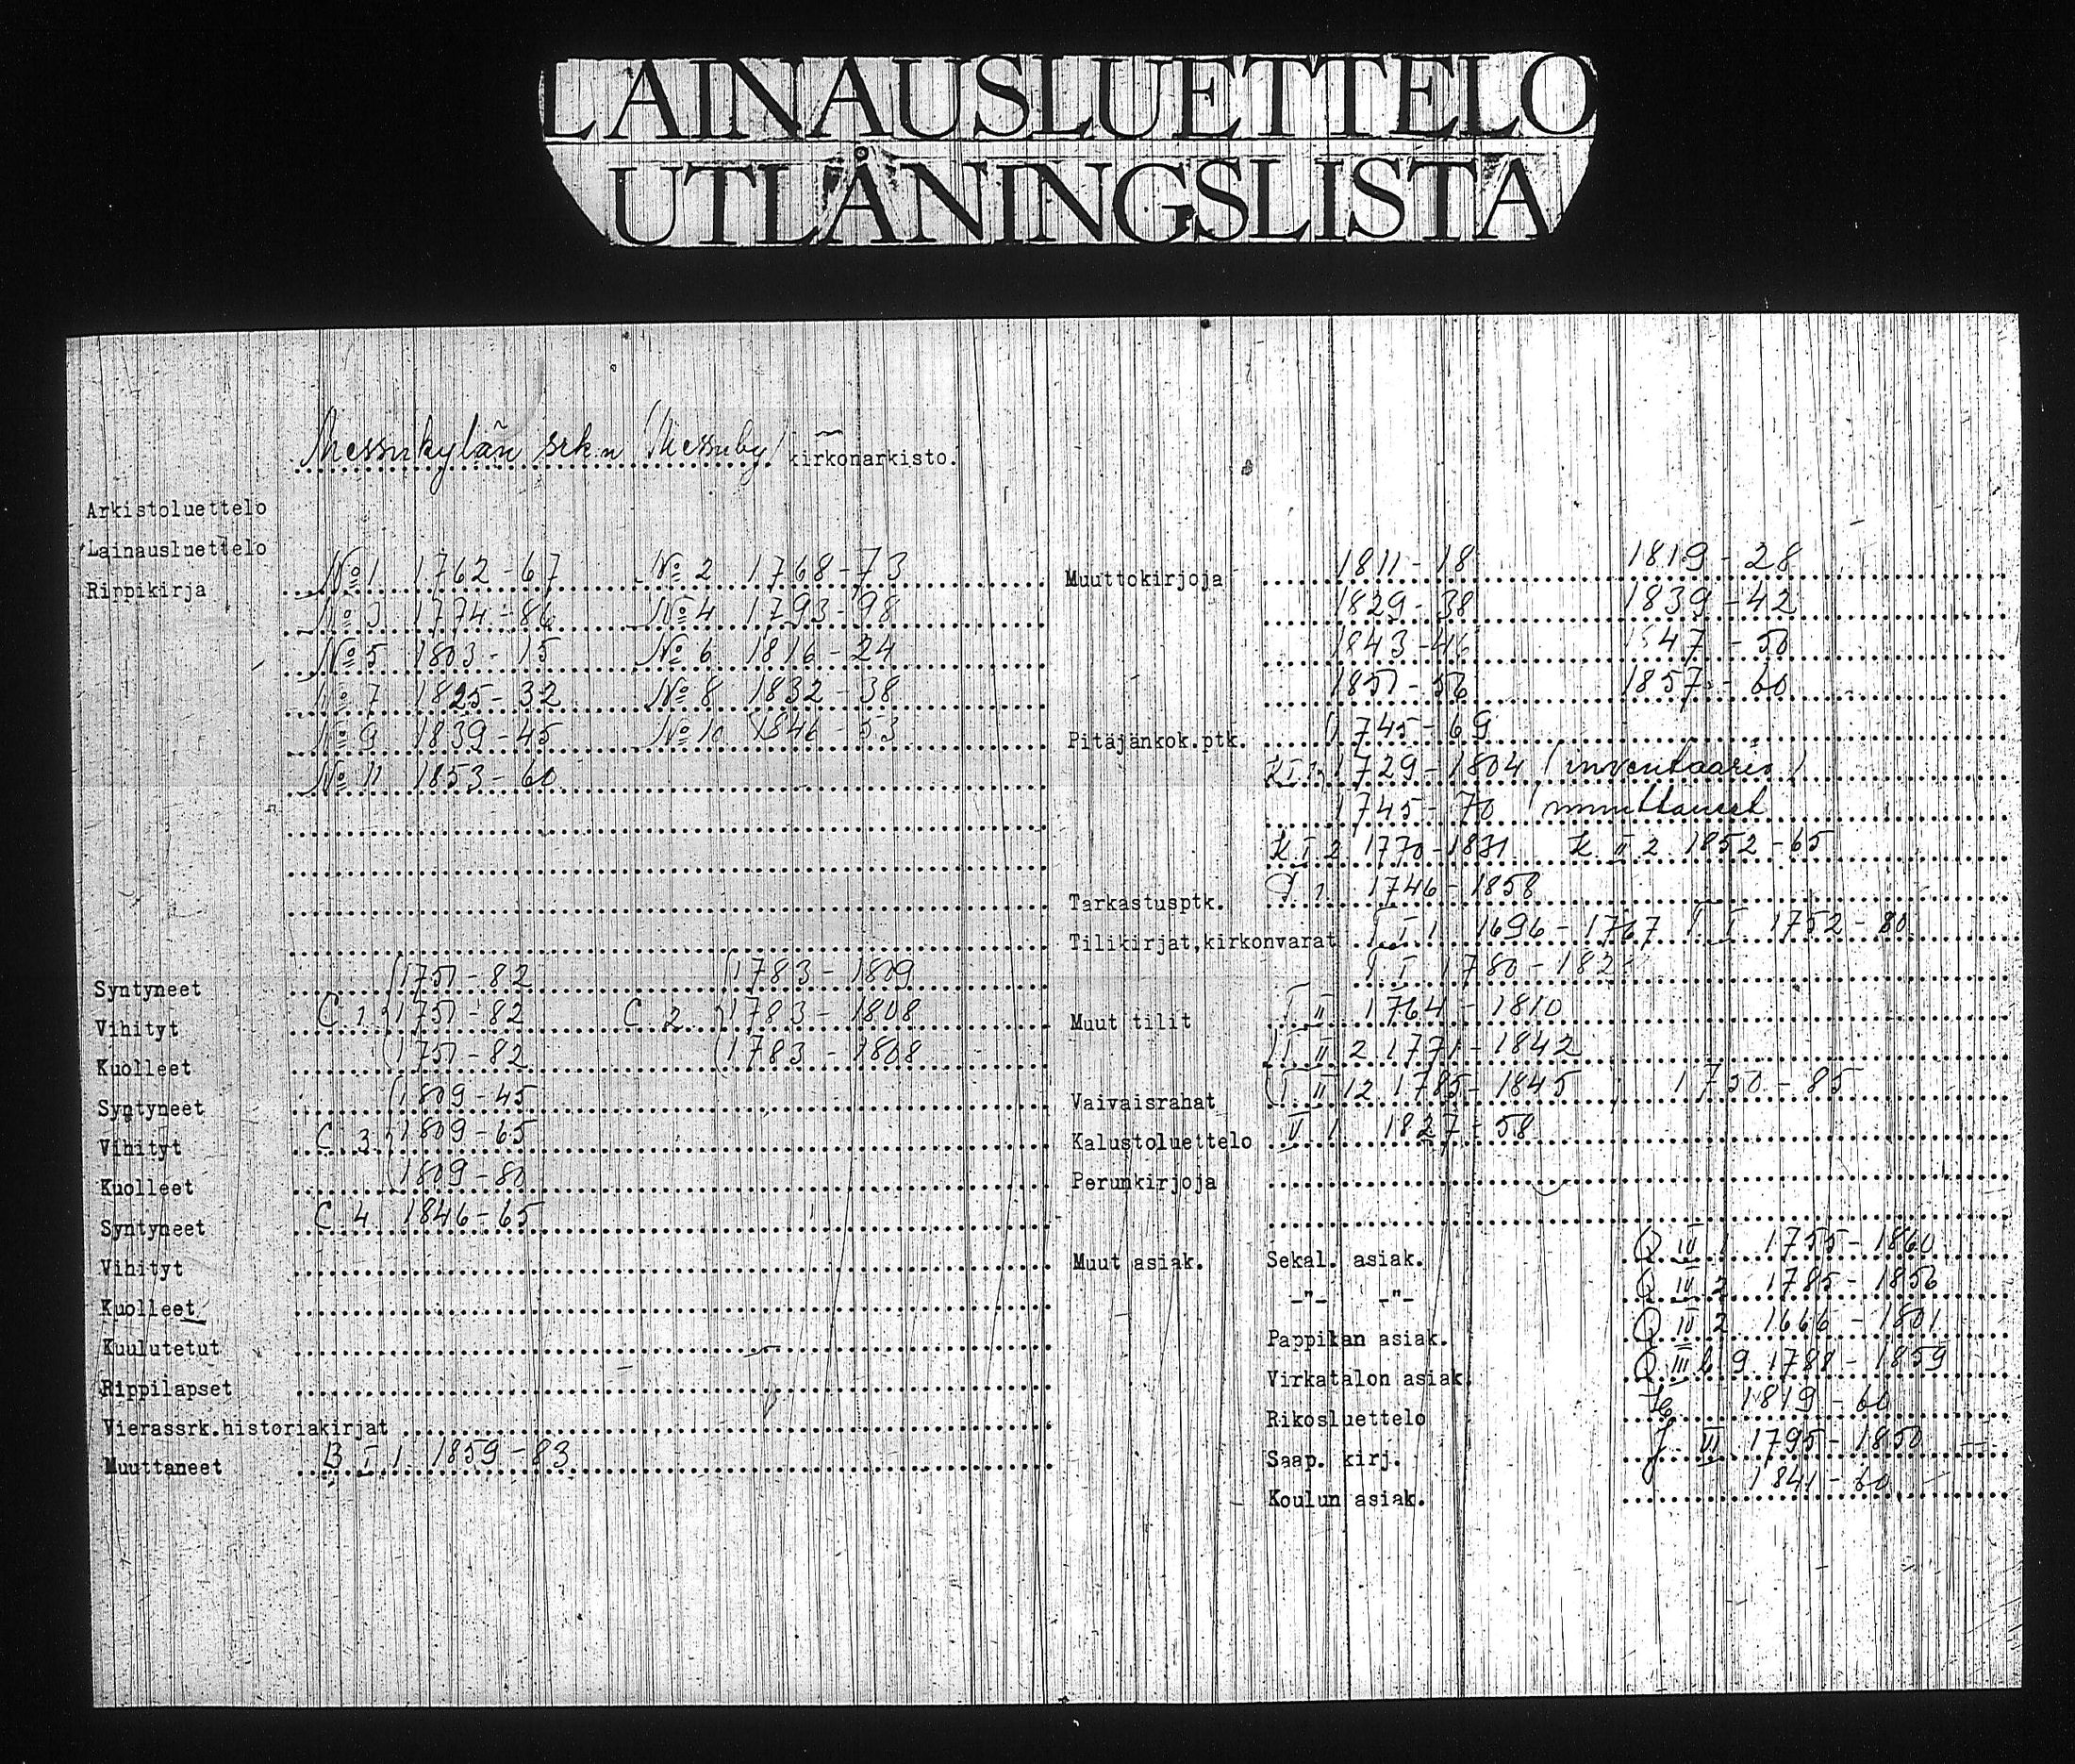 LAINAUSLUETTELO
UTLÅNINGSLISTA
Messukylän srk:n (Messuby) kirkonarkisto.
Arkistoluettelo
Lainausluettelo
Rippikirja No 1 1762-67 No 2 1768-73
No 3 1774-86 No 4 1793-98
No 5 1803-15 No 6 1816-24
No 7 1825-32 No 8 1832-38
No 9 1839-45 No 10 1846-53
No 11 1853-60
Syntyneet 1751-82 1783-1809
Vihityt C 1 1751-82 C 2 1783-1808
Kuolleet 1751-82 1783-1808
Syntyneet 1809-45
Vihityt C 3 1809-65
Kuolleet 1809-80
Syntyneet C 4 1846-65
Vihityt
Kuolleet
Kuulutetut
Rippilapset
Vierassrk.historiakirjat
Muuttaneet B I 1 1859-83
Muuttokirjoja 1811-18 1819-28
1829-38 1839-42
1843-46 1847-50
1851-56 1857-60
Pitäjänkok.ptk. 1745-69
K I 1 1729-1804 (inventaario)
1745-70 (muuttaneet
K I 2 1770-1831 K II 2 1852-65
Tarkastusptk. 1746-1858
Tilikirjat,kirkonvarat T I 1 1696-1767 T I 1752-80
T I 1780-182
Muut tilit T II 1764-1810
T II 2 1771-1842
Vaivaisrahat T II 12 1785-1845 1750-85
Kalustoluettelo V 1 1827-58
Perunkirjoja
Muut asiak. Sekal. asiak. Q IV 1 1755-1860
-"- -"- Q IV 2 1785-1856
Pappilan asiak. Q IV 2 1666-1801
Virkatalon asiak. Q III b 9 1788-1859
Rikosluettelo 1819-60
Saap. kirj. J VI 1795-1850
Koulun asiak. 1841-60